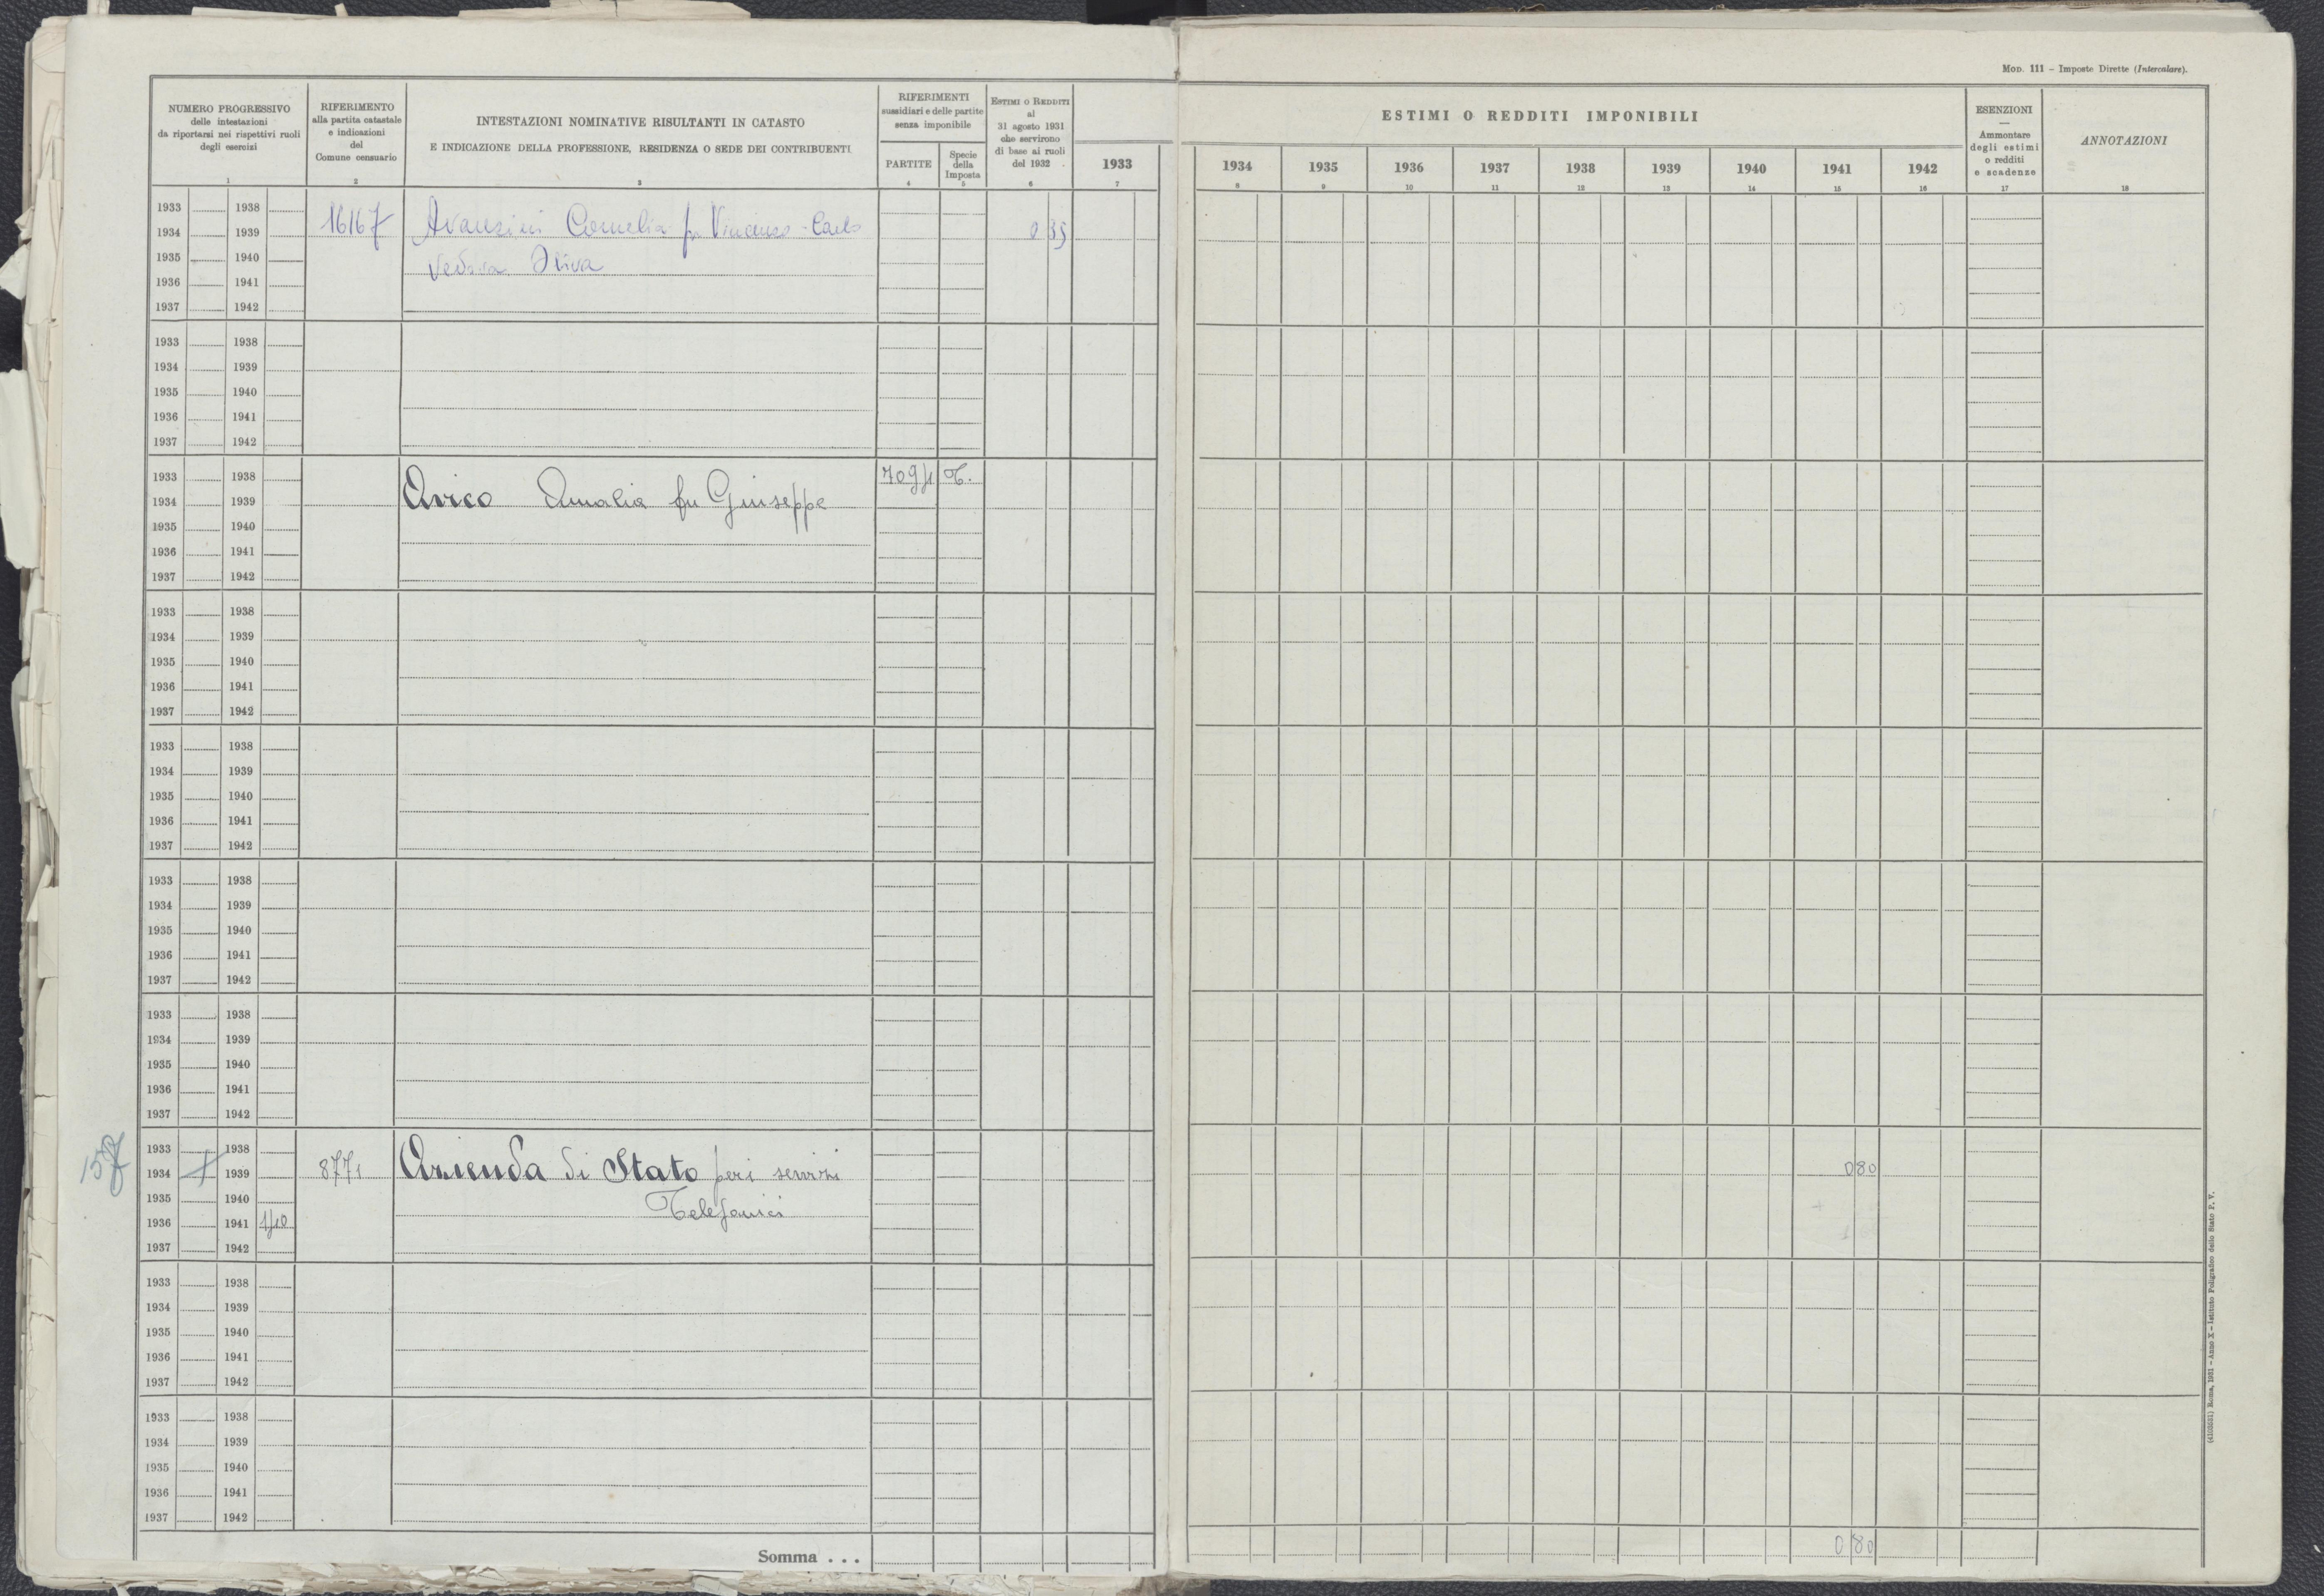 MOD. 111 – Imposte Dirette (Intercalare).
NUMERO PROGRESSIVO
delle intestazioni
da riportarsi nei rispettivi ruoli
degli esercizi
1
RIFERIMENTO
alla partita catastale
e indicazioni
del
Comune censuario
2
INTESTAZIONI NOMINATIVE RISULTANTI IN CATASTO
E INDICAZIONE DELLA PROFESSIONE, RESIDENZA O SEDE DEI CONTRIBUENTI
3
RIFERIMENTI
sussidiari e delle partite
senza imponibile
PARTITE
4
Specie
della
Imposta
5
ESTIMI O REDDITI
al
31 agosto 1931
che servirono
di base ai ruoli
del 1932
6
ESTIMI O REDDITI IMPONIBILI
1933 1934 1935 1936 1937 1938 1939 1940 1941 1942
7 8 9 10 11 12 13 14 15 16
ESENZIONI
—
Ammontare
degli estimi
o redditi
e scadenze
17
ANNOTAZIONI
18
1933 1938
1934 1939 16167 Avanzini Cornelia fu Vincenzo - Carlo 0 35
1935 1940 Vedova
1936 1941
1937 1942
1933 1938
1934 1939
1935 1940
1936 1941
1937 1942
1933 1938 T.
1934 1939 Avico Amalia fu Giuseppe
1935 1940
1936 1941
1937 1942
1933 1938
1934 1939
1935 1940
1936 1941
1937 1942
1933 1938
1934 1939
1935 1940
1936 1941
1937 1942
1933 1938
1934 1939
1935 1940
1936 1941
1937 1942
1933 1938
1934 1939
1935 1940
1936 1941
1937 1942
1933 1938
1934 1939 8771 Azienda di Stato per i servizi 0 80
1935 1940 Telefonici
1936 1941
1937 1942
1933 1938
1934 1939
1935 1940
1936 1941
1937 1942
1933 1938
1934 1939
1935 1940
1936 1941
1937 1942
Somma . . . 0 80
(4103551) Roma, 1931 – Anno X – Istituto Poligrafico dello Stato P. V.